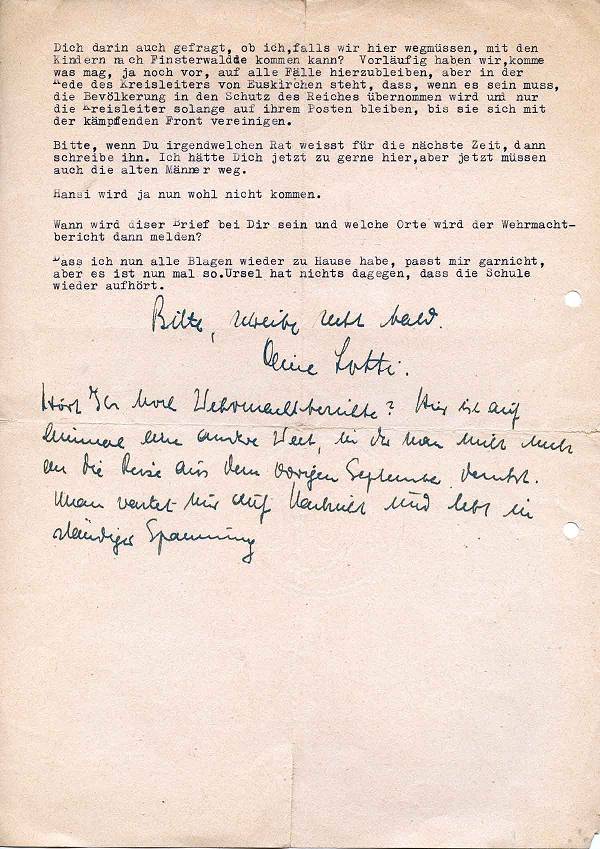 Dich darin auch gefragt, ob ich,falls wir hier wegmüssen, mit den
Kindern nach Finsterwaldde kommen kann? Vorläufig haben wir,komme
was mag, ja noch vor, auf alle Fälle hierzubleiben, aber in der
Rede des Kreisleiters von Euskirchen steht, dass, wenn es sein muss,
die Bevölkerung in den Schutz des Reiches übernommen wird und nur
die Kreisleiter solange auf ihrem Posten bleiben, bis sie sich mit
der kämpfenden Front vereinigen.
Bitte, wenn Du irgendwelchen Rat weisst für die nächste Zeit, dann
schreibe ihn. Ich hätte Dich jetzt zu gerne hier,aber jetzt müssen
auch die alten Männer weg.
Hansi wird ja nun wohl nicht kommen.
Wann wird diser Brief bei Dir sein und welche Orte wird der Wehrmacht-
bericht dann melden?
Dass ich nun alle Blagen wieder zu Hause habe, passt mir garnicht,
aber es ist nun mal so.Ursel hat nichts dagegen, dass die Schule
wieder aufhört.
Bitte, schreibe recht bald.
Deine Lotti.
Hört Ihr noch Wehrmachtsberichte? Hier ist auf
einmal eine andere Welt, in der man mich nicht
an die Reise aus dem vorigen September.
Man wartet nur auf Nachricht und lebt in
ständiger Spannung